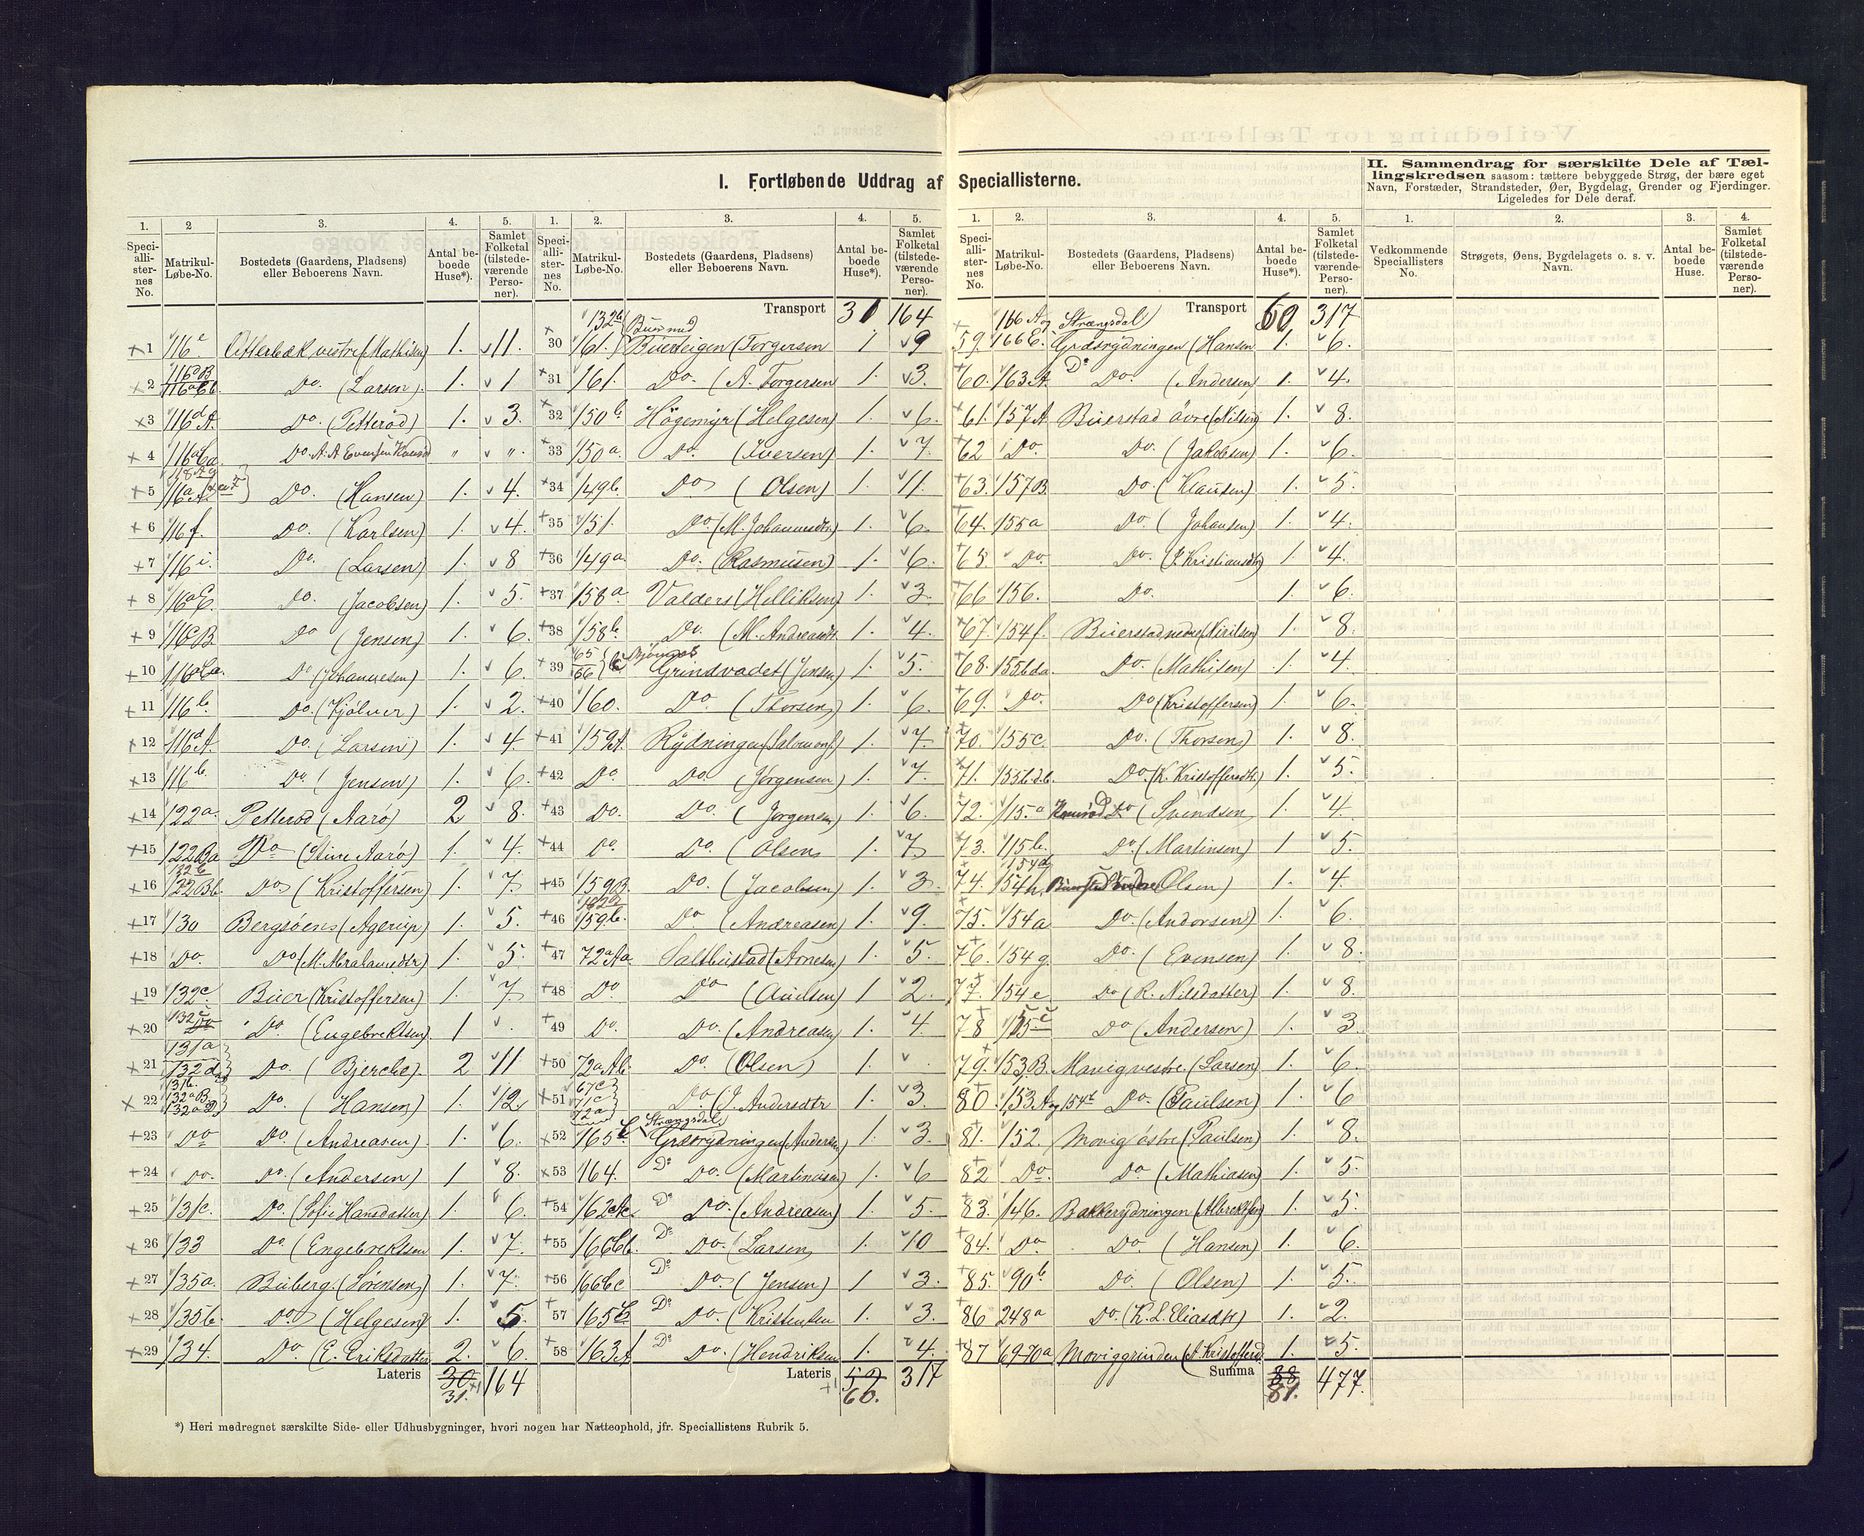 I. Fortløbende Uddrag af Speciallisterne.
II. Sammendrag for særskilte Dele af Tæl-
lingskredsen saasom: tættere bebyggede Strøg, der bære eget
Navn, Forstæder, Strandsteder, Øer, Bygdelag, Grender og Fjerdinger.
Ligeledes for Dele deraf.
1. 2 3. 4. 5.
Speci-alli-ster-nes No. Matrikul-Løbe-No. Bostedets (Gaardens, Pladsens) eller Beboerens Navn. Antal be-boede Huse*). Samlet Folketal (tilstede-værende Perso-ner).
1 116c Otterbæk vestre (Mathisen) 1. 11.
2 Do. (Larsen) 1. 1
3 116d A. Do. (Petterød) 1. 3.
4 Do. A. A. Evensen " "
5 Do. (Hansen) 1. 4.
6 116f. Do. (Karlsen) 1. 4.
7 116i. Do. (Larsen) 1. 8
8 116aE Do. (Jacobsen) 1. 5.
9 116cB Do (Jensen) 1. 6.
10 Do (Johannesen) 1. 6.
11 116b. Do. (Kjølner) 1. 2.
12 116dA Do. (Larsen) 1. 4.
13 116b. Do (Jensen) 1. 6.
14 122a. Petterød (Aarø) 2 8.
15 122Ba Do (Stine Aarø) 1. 4.
16 122Bb. Do (Kristoffersen) 1. 7.
17 130 Bergsøens (Agerup) 1. 5.
18 Do. Do (M. Abrahamsdtr) 1. 5.
19 132c. Buer (Kristoffersen) 1. 7.
20 Do. (Engebrektsen) 1 .
21 131a 132d Do. (Bjercke) 2 11
22 131b. 132aB 132aD Do. (Hansen) 1. 12.
23 Do Do. (Andreasen) 1. 6.
24 Do. Do. (Andersen) 1 8.
25 131c. Do. (Sofie Hansdatter) 1. 6.
26 133 Do (Engebrektsen 1. 7.
27 135a. Buberg. (Sørensen) 1. 7.
28 135b. Do. (Helgesen) 1. 5.
29 134. Do. (E. Eriksdatter 2. 6.
Lateris 30 31. 164
*) Heri medregnet særskilte Side- eller Udhusbygninger, hvori nogen har Natteophold, jfr. Speciallistens Rubrik 5.
1. 2. 3. 4. 5.
Speci-alli-ster-nes No. Matrikul-Løbe-No. Bostedets (Gaardens, Pladsens) eller Beboerens Navn. Antal be-boede Huse*). Samlet Folketal (tilstede-værende Perso-ner).
Transport 31 164
30 161. Buerseigen (Torgersen 1 9
31 161. Do. (A. Torgersen 1. 3.
32 150b. Högemyr (Helgesen) 1. 6.
33 150a. Do. (Iversen) 1. 7.
34 149b. Do (Olsen) 1. 11.
35 151. Do. (M. Johannsdtr) 1. 6.
36 149a Do. (Rasmusen) 1. 6.
37 158a. Valders (Helliksen) 1. 3.
38 158b. Do. (M. Andreasdtr 1. 4.
39 65 66 Grindvadet (Jensen) 1. 5.
40 160. Do (Thorsen) 1. 6.
41 159A. Rydningen (Salomons.) 1. 7.
42 Do Do (Jørgensen) 1. 7.
43 Do. Do. (Jørgensen) 1. 6.
44 Do. Do. (Olsen) 1. 7
45 159B. Do. (Jacobsen) 1. 3.
46 159b. Do. (Andreasen) 1. 9.
47 72aAa Saltbustad (Arnesen) 1. 5.
48 Do Do (Aulsen) 1 2.
49 Do. Do. (Andreasen) 1. 4.
50 72aAb. Do. (Olsen) 1. .
51 67c 71c 72a Do. (J. Andersdtr 1. 3.
52 Strangsdal Græsrydningen (Andersen 1. 3.
53 164. Do Do. (Martinisen) 1. 6
54 Do Do. (Andreasen) 1. 5.
55 166Cb. Do Do. (Larsen) 1. 10
56 166Cc Do Do (Jensen) 1 3.
57 Do Do (Kristensen 1. 3.
58 163A Do Do. (Hendriksen 1. 4.
Lateris 59 60. 317
1. 2. 3. 4. 5.
Speci-alli-ster-nes No. Matrikul-Løbe-No. Bostedets (Gaardens, Pladsens) eller Beboerens Navn. Antal be-boede Huse*). Samlet Folketal (tilstede-værende Perso-ner).
Transport 60 317
Strangsdal
59. Græsrydningen (Hansen 1. 6.
60. 163A. Do Do. (Andersen) 1. 4.
61. 157A Buerstad övre (Nilsen) 1. 8.
62 Do. Do. (Jakobsen) 1. 6.
63. 157B. Do. (Klausen) 1. 5.
64. 155a Do. (Johansen) 1. 4.
65. Do Do. (Kristiansdtr) 1. 4.
66 156. Do. 1. 6.
67. 154f. Buerstad nedre (Nirilsen) 1. 8.
68. 155bda. Do. (Mathisen) 1. 4.
69. Do. Do (Kristoffersen) 1. 6.
70. 155c. Do. (Thorsen) 1. 8.
71. 155bdb. Do. (K. Kristoffersdtr) 1. 5.
72. 115a Do (Svendsen 1. 4.
73. 115b. Do. (Martinsen) 1 5.
74. 154h. Olsen) 1. 4.
75. 154a Do. (Andorsen) 1. 6.
76. 154g. Do. (Evensen) 1. 8.
77. 154e Do (R. Nilsdatter) 1. 8.
78 Do (Andersen) 1. 3.
79. 153B. Movig vestre. (Larsen) 1. 6.
80. 153A og 154b Do. (Paulsen) 1. 6
81. 152. Movig östre (Paulsen) 1. 8.
82 Do. Do. (Mathiasen) 1. 5.
83. 146. Bakkerydningen (Albrektsen) 1. 5.
84. Do Do (Hansen) 1. 6.
85. 90b Do. (Olsen) 1. 5.
86 248a Do. (K. L. Eliasdtr) 1. 2.
87 69-70a Moviggrinden (A. Kristoffersd 1. 5.
Summa 88 81. 477.
1. 2. 3. 4.
Vedkommende Speciallisters No. Strøgets, Øens, Bygdelagets o. s. v. Navn. Antal be-boede Huse. Samlet Folketal (tilstede-værende Perso-ner).